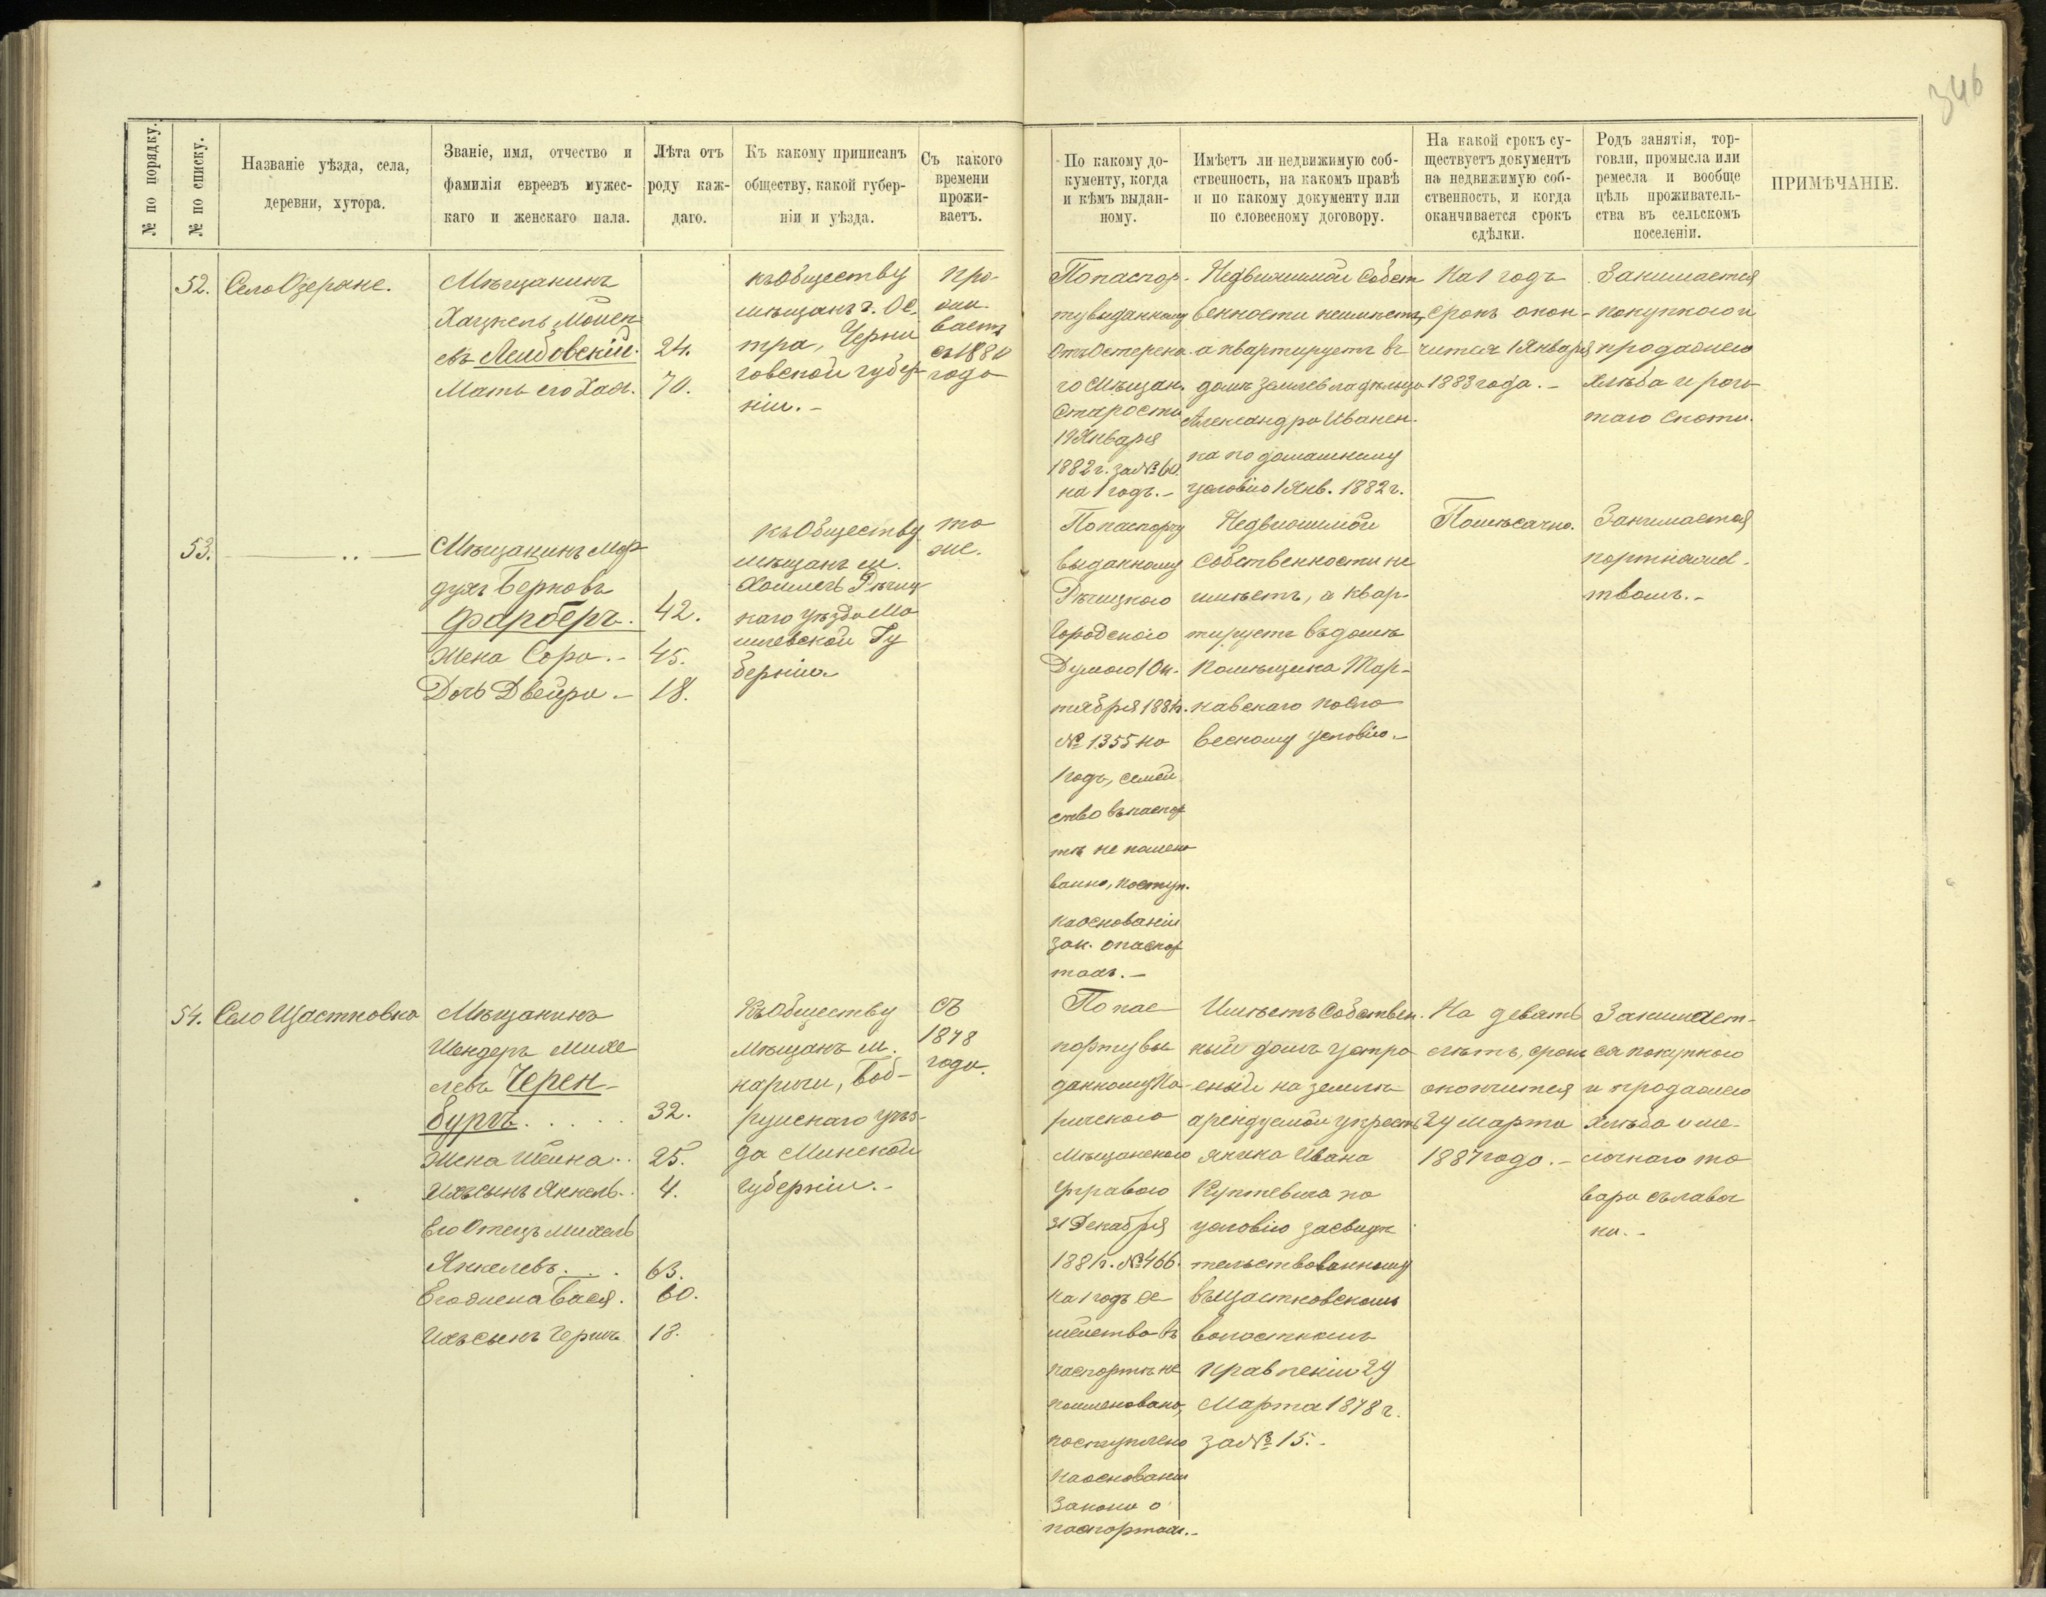 346
№ по порядку.
№ по списку.
Названіе уѣзда, села,
деревни, хутора.
Званіе, имя, отчество и
фамилія евреевъ мужес-
каго и женскаго пала.
Лѣта отъ
роду каж-
даго.
Къ какому приписанъ
обществу, какой губер-
ніи и уѣзда.
Съ какого
времени
прожи-
ваетъ.
По какому до-
кументу, когда
и кѣмъ выдан-
ному.
Имѣетъ ли недвижимую соб-
ственность, на какомъ правѣ
и по какому документу или
по словесному договору.
На какой срокъ су-
ществуетъ документъ
на недвижимую соб-
ственность, и когда
оканчивается срокъ
сдѣлки.
Родъ занятія, тор-
говли, промысла или
ремесла и вообще
цѣль проживатель-
ства въ сельскомъ
поселеніи.
ПРИМѢЧАНІЕ.
52.
Село Озеряне.
Мѣщанинъ
Хацкель Мойсе-
евъ Лейбовскій.
Мать его Хая.
24.
70.
къ Обществу
мѣщанъ г. Ос-
тра, Черни
говской губер-
ніи.-
про-
жи-
ваетъ
съ 1880
года
По паспор-
ту выданному
отъ Остерска-
го мѣщан.
Старосты
19 Января
1882 г. за № 60
на 1 годъ.-
Недвижимой собст
венности неимѣетъ,
а квартируетъ въ
домѣ землевладѣльца
Александра Иванен-
ка по домашнему
условію 1 Янв. 1882 г.
На 1 годъ
срокъ окон-
чится 1 Января
1883 года.-
Занимается
покупкою и
продажею
хлѣба и рога-
таго скота.
53.
— „ —
Мѣщанинъ Мор
духъ Берковъ
Фарберъ.
Жена Сора.-
Дочь Двейра.-
42.
45.
18.
къ Обществу
мѣщанъ м.
Холмечъ Рѣчиц
каго уѣзда Мо
гилевской Гу
берніи.
то
же.
По паспорту
выданному
Рѣчицкою
Городскою
Думою 1 Ок-
тября 1881 г.
№ 1355 на
1 годъ, семей
ство въ паспор
тѣ не поимено
ванно, поступ.
на основаніи
зак. о паспор
тахъ.-
Недвижимой
собственности не
имѣетъ, а квар-
тируетъ въ домѣ
Помѣщика Тар-
навскаго по сло
весному условію.-
Помѣсячно.
Занимается
портняжес-
твомъ.-
54.
Село Щастновка
Мѣщанинъ
Шендеръ Михе
левъ Черен-
бургъ . . . . .
Жена Шейна..
Ихъ сынъ Янкель..
Его Отецъ Михель
Янкелевъ. . .
Его жена Бася.
Ихъ сынъ Герцъ
32.
25.
4.
63.
60.
18.
Къ Обществу
Мѣщанъ м.
Паричи, Боб-
руйскаго уѣз-
да Минской
Губерніи.-
съ
1878
года.
По пас
порту вы
данному Па-
ричскою
Мѣщанскою
Управою
31 Декабря
1881 г. № 466
на 1 годъ се
мейство въ
паспортѣ не
поименовано,
поступлено
на основаніи
Закона о
паспортахъ.-
Имѣетъ Собствен-
ный домъ устро
еный на землѣ
арендуемой у крест
янина Ивана
Куптевича по
условію засвидѣ
тельствованному
въ Щастновскомъ
волостномъ
правленіи 29
Марта 1878 г.
за № 15.-
На девять
лѣтъ, срокъ
окончится
29 Марта
1887 года.-
Занимает-
ся покупкою
и продажею
хлѣба и ме-
лочнаго то
вара съ лавоч
ки.-